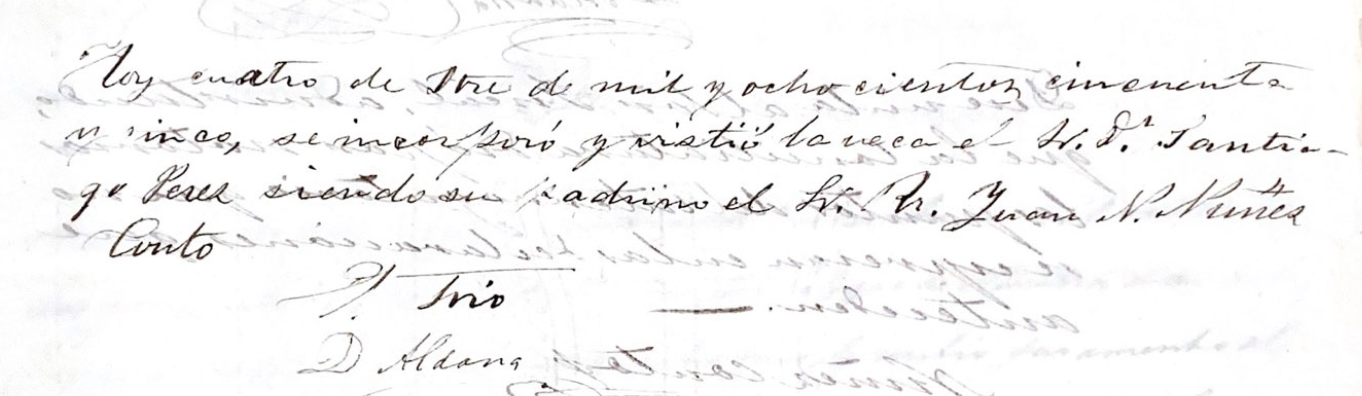 Hoy cuatro de Dbre de mil y ochocientos cincuenta
y cinco, se incorporó y vistió la veca el Sr. Dn. Santia-
go Perez siendo su padrino el Sr. Dr. Juan N. Nuñez
Conto
Trio
D Aldana